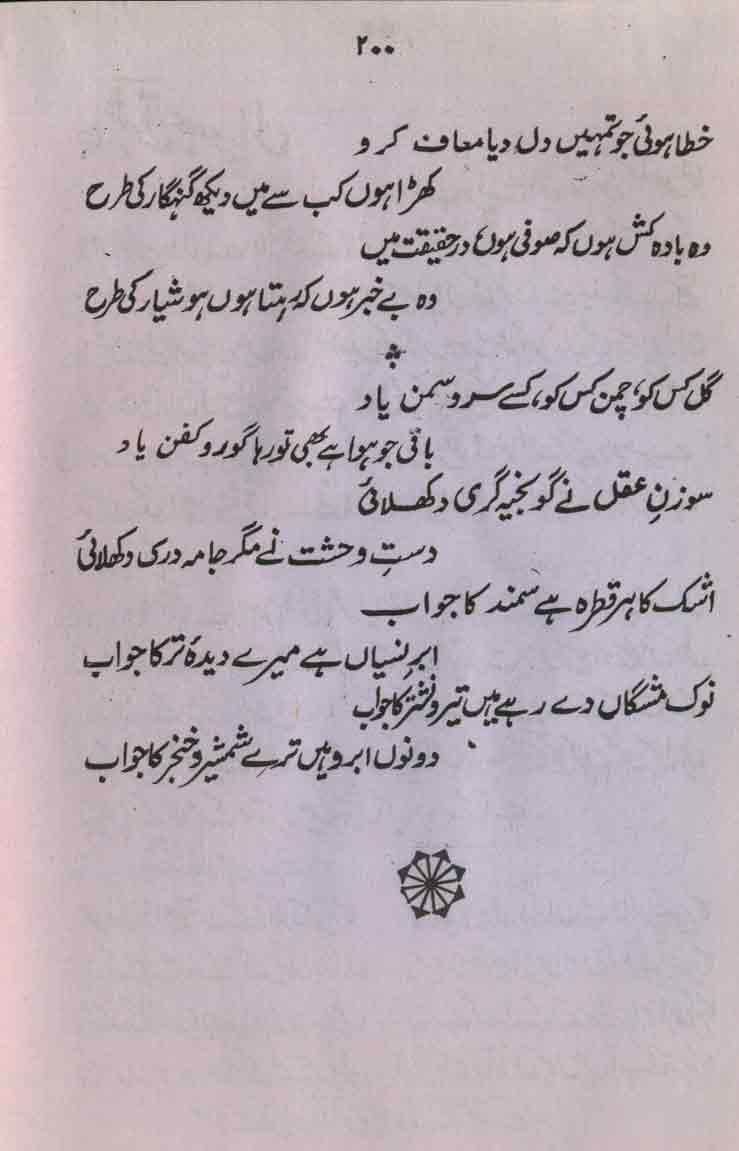 ۲۰۰
خطا ہوئی جو تمہیں دل دیا معاف کرو
کھڑا ہوں کب سے میں دیکھ گنہگار کی طرح
وہ بادہ کش ہوں کہ صوفی ہوں، در حقیقت میں
وہ بے خبر ہوں کہ رہتا ہوں ہوشیار کی طرح
گل کس کو، چمن کس کو، کسے سرو سمن یاد
باقی جو ہوا ہے بھی تو رہا گور و کفن یاد
سوزنِ عقل نے گو بخیہ گری دکھلائی
دستِ وحشت نے مگر جامہ دری دکھلائی
اشک کا ہر قطرہ ہے سمند کا جواب
ابرِ نسیاں ہے میرے دیدۂ تر کا جواب
نوک مشگاں دے رہے ہیں تیر و نشتر کا جواب
دونوں ابرو ہیں ترے شمشیر و خنجر کا جواب